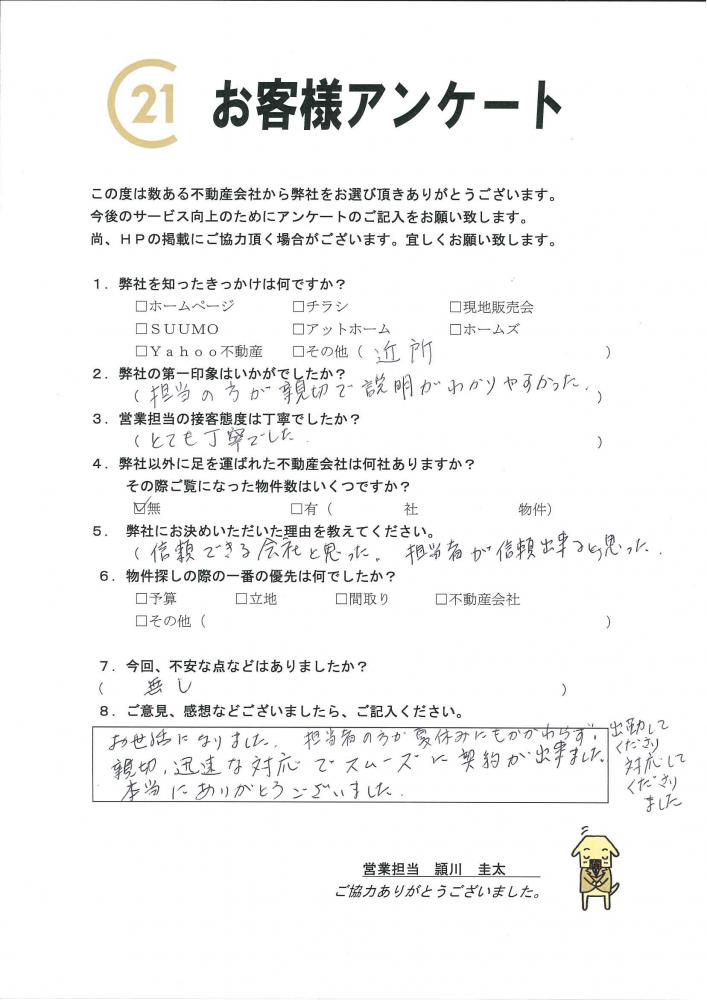 21 お客様アンケート
この度は数ある不動産会社から弊社をお選び頂きありがとうございます。
今後のサービス向上のためにアンケートのご記入をお願い致します。
尚、ＨＰの掲載にご協力頂く場合がございます。宜しくお願い致します。
１．弊社を知ったきっかけは何ですか？
□ホームページ □チラシ □現地販売会
□ＳＵＵＭＯ □アットホーム □ホームズ
□Ｙａｈｏｏ不動産 □その他（ 近所 ）
２．弊社の第一印象はいかがでしたか？
（担当の方が親切で説明がわかりやすかった。）
３．営業担当の接客態度は丁寧でしたか？
（とても丁寧でした。）
４．弊社以外に足を運ばれた不動産会社は何社ありますか？
その際ご覧になった物件数はいくつですか？
☑無 □有（ 社 物件）
５． 弊社にお決めいただいた理由を教えてください。
（信頼できる会社と思った。担当者が信頼出来ると思った。
６．物件探しの際の一番の優先は何でしたか？
□予算 □立地 □間取り □不動産会社
□その他（ ）
７．今回、不安な点などはありましたか？
（ 無し ）
８．ご意見、感想などございましたら、ご記入ください。
お世話になりました。担当者の方が夏休みにもかかわらず、出勤して
くださり
対応して
くださり
ました
親切、迅速な対応でスムーズに契約が出来ました。
本当にありがとうございました。
営業担当 頴川 圭太
ご協力ありがとうございました。